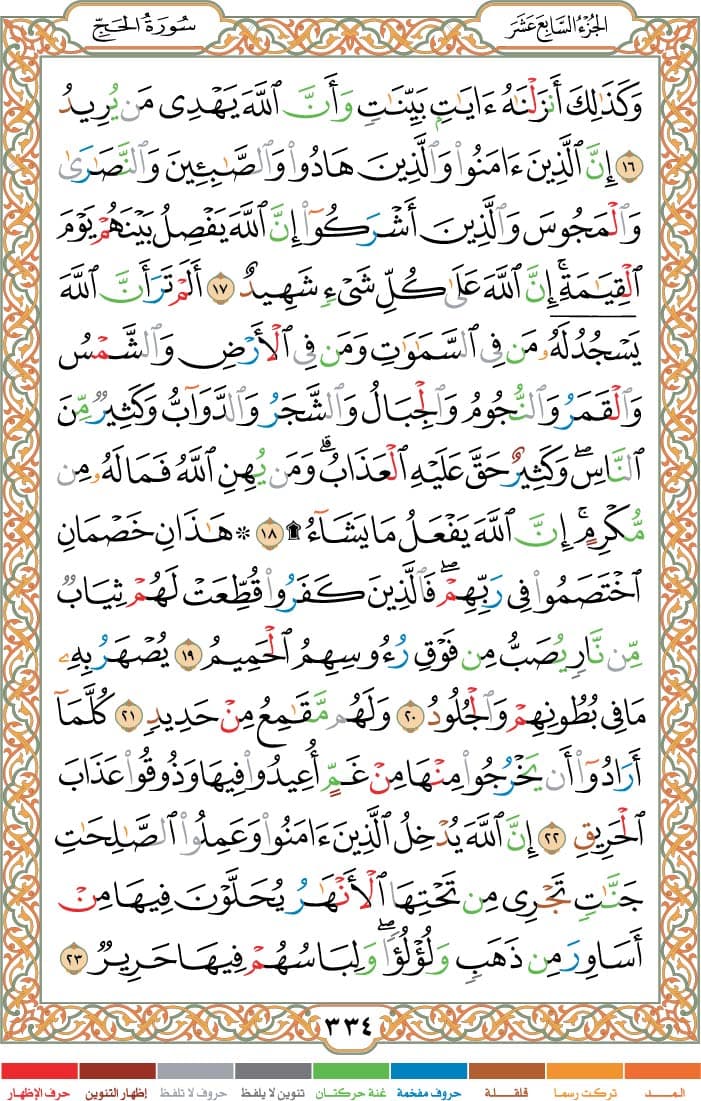 الجزء السابع عشر
سورة الحج
وَكَذَٰلِكَ أَنزَلْنَٰهُ ءَايَٰتٍۭ بَيِّنَٰتٍ وَأَنَّ ٱللَّهَ يَهْدِى مَن يُرِيدُ
١٦ إِنَّ ٱلَّذِينَ ءَامَنُوا۟ وَٱلَّذِينَ هَادُوا۟ وَٱلصَّٰبِـِٔينَ وَٱلنَّصَٰرَىٰ
وَٱلْمَجُوسَ وَٱلَّذِينَ أَشْرَكُوٓا۟ إِنَّ ٱللَّهَ يَفْصِلُ بَيْنَهُمْ يَوْمَ
ٱلْقِيَٰمَةِ ۚ إِنَّ ٱللَّهَ عَلَىٰ كُلِّ شَىْءٍ شَهِيدٌ ١٧ أَلَمْ تَرَ أَنَّ ٱللَّهَ
يَسْجُدُ لَهُۥ مَن فِى ٱلسَّمَٰوَٰتِ وَمَن فِى ٱلْأَرْضِ وَٱلشَّمْسُ
وَٱلْقَمَرُ وَٱلنُّجُومُ وَٱلْجِبَالُ وَٱلشَّجَرُ وَٱلدَّوَآبُّ وَكَثِيرٌ مِّنَ
ٱلنَّاسِ ۖ وَكَثِيرٌ حَقَّ عَلَيْهِ ٱلْعَذَابُ ۗ وَمَن يُهِنِ ٱللَّهُ فَمَا لَهُۥ مِن
مُّكْرِمٍ ۚ إِنَّ ٱللَّهَ يَفْعَلُ مَا يَشَآءُ ۩ ١٨ * هَٰذَانِ خَصْمَانِ
ٱخْتَصَمُوا۟ فِى رَبِّهِمْ ۖ فَٱلَّذِينَ كَفَرُوا۟ قُطِّعَتْ لَهُمْ ثِيَابٌ
مِّن نَّارٍ يُصَبُّ مِن فَوْقِ رُءُوسِهِمُ ٱلْحَمِيمُ ١٩ يُصْهَرُ بِهِۦ
مَا فِى بُطُونِهِمْ وَٱلْجُلُودُ ٢٠ وَلَهُم مَّقَٰمِعُ مِنْ حَدِيدٍ ٢١ كُلَّمَآ
أَرَادُوٓا۟ أَن يَخْرُجُوا۟ مِنْهَا مِنْ غَمٍّ أُعِيدُوا۟ فِيهَا وَذُوقُوا۟ عَذَابَ
ٱلْحَرِيقِ ٢٢ إِنَّ ٱللَّهَ يُدْخِلُ ٱلَّذِينَ ءَامَنُوا۟ وَعَمِلُوا۟ ٱلصَّٰلِحَٰتِ
جَنَّٰتٍ تَجْرِى مِن تَحْتِهَا ٱلْأَنْهَٰرُ يُحَلَّوْنَ فِيهَا مِنْ
أَسَاوِرَ مِن ذَهَبٍ وَلُؤْلُؤًا ۖ وَلِبَاسُهُمْ فِيهَا حَرِيرٌ ٢٣
٣٣٤
المــد تركت رسما قلقلة حروف مفخمة غنة حركتان تنوين لا يلفظ حروف لا تلفظ إظهار التنوين حرف الإظهار